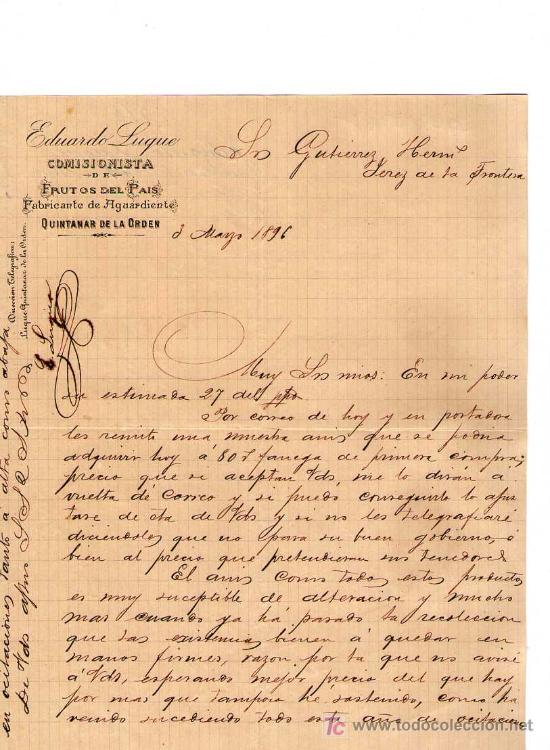 Eduardo Luque
COMISIONISTA
DE
FRUTOS DEL PAIS
Fabricante de Aguardiente
QUINTANAR DE LA ORDEN
Dirección Telegráfica:
Luque Quintanar de la Orden.
Srs Gutierrez Hermˢ
Jerez de la Frontera
3 Mayo 1896
Muy Srs mios: En mi poder
su estimada 27 del ppdo
Por correo de hoy y en portadora
les remiti una muestra anis que se podria
adquirir hoy á 80 fanega de primera compra;
precio que si aceptan Vds, me lo diran á
vuelta de Correo y si puedo conseguirlo lo ajus
tare de cta de Vds y si no les telegrafiaré
diciendoles que no para su buen gobierno, ó
bien al precio que pretendieran sus tenedores
El anis como todos estos productos
es muy suceptible de alteracion y mucho
mas cuando ya há pasado la recoleccion
que las existencias bienen á quedar en
manos firmes, razon por la que no avisé
á Vds, esperando mejor precio del que hay
por mas que tampoco hé sostenido, como há
venido sucediendo todo este año de ocilacion
en ocilaciones tanto a alta como abaja
De Vds afmo S S Q S M B
E Luque
todocoleccion